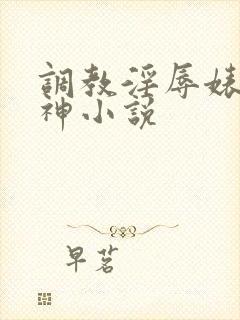 調教淫辱婊
神小說
早茗